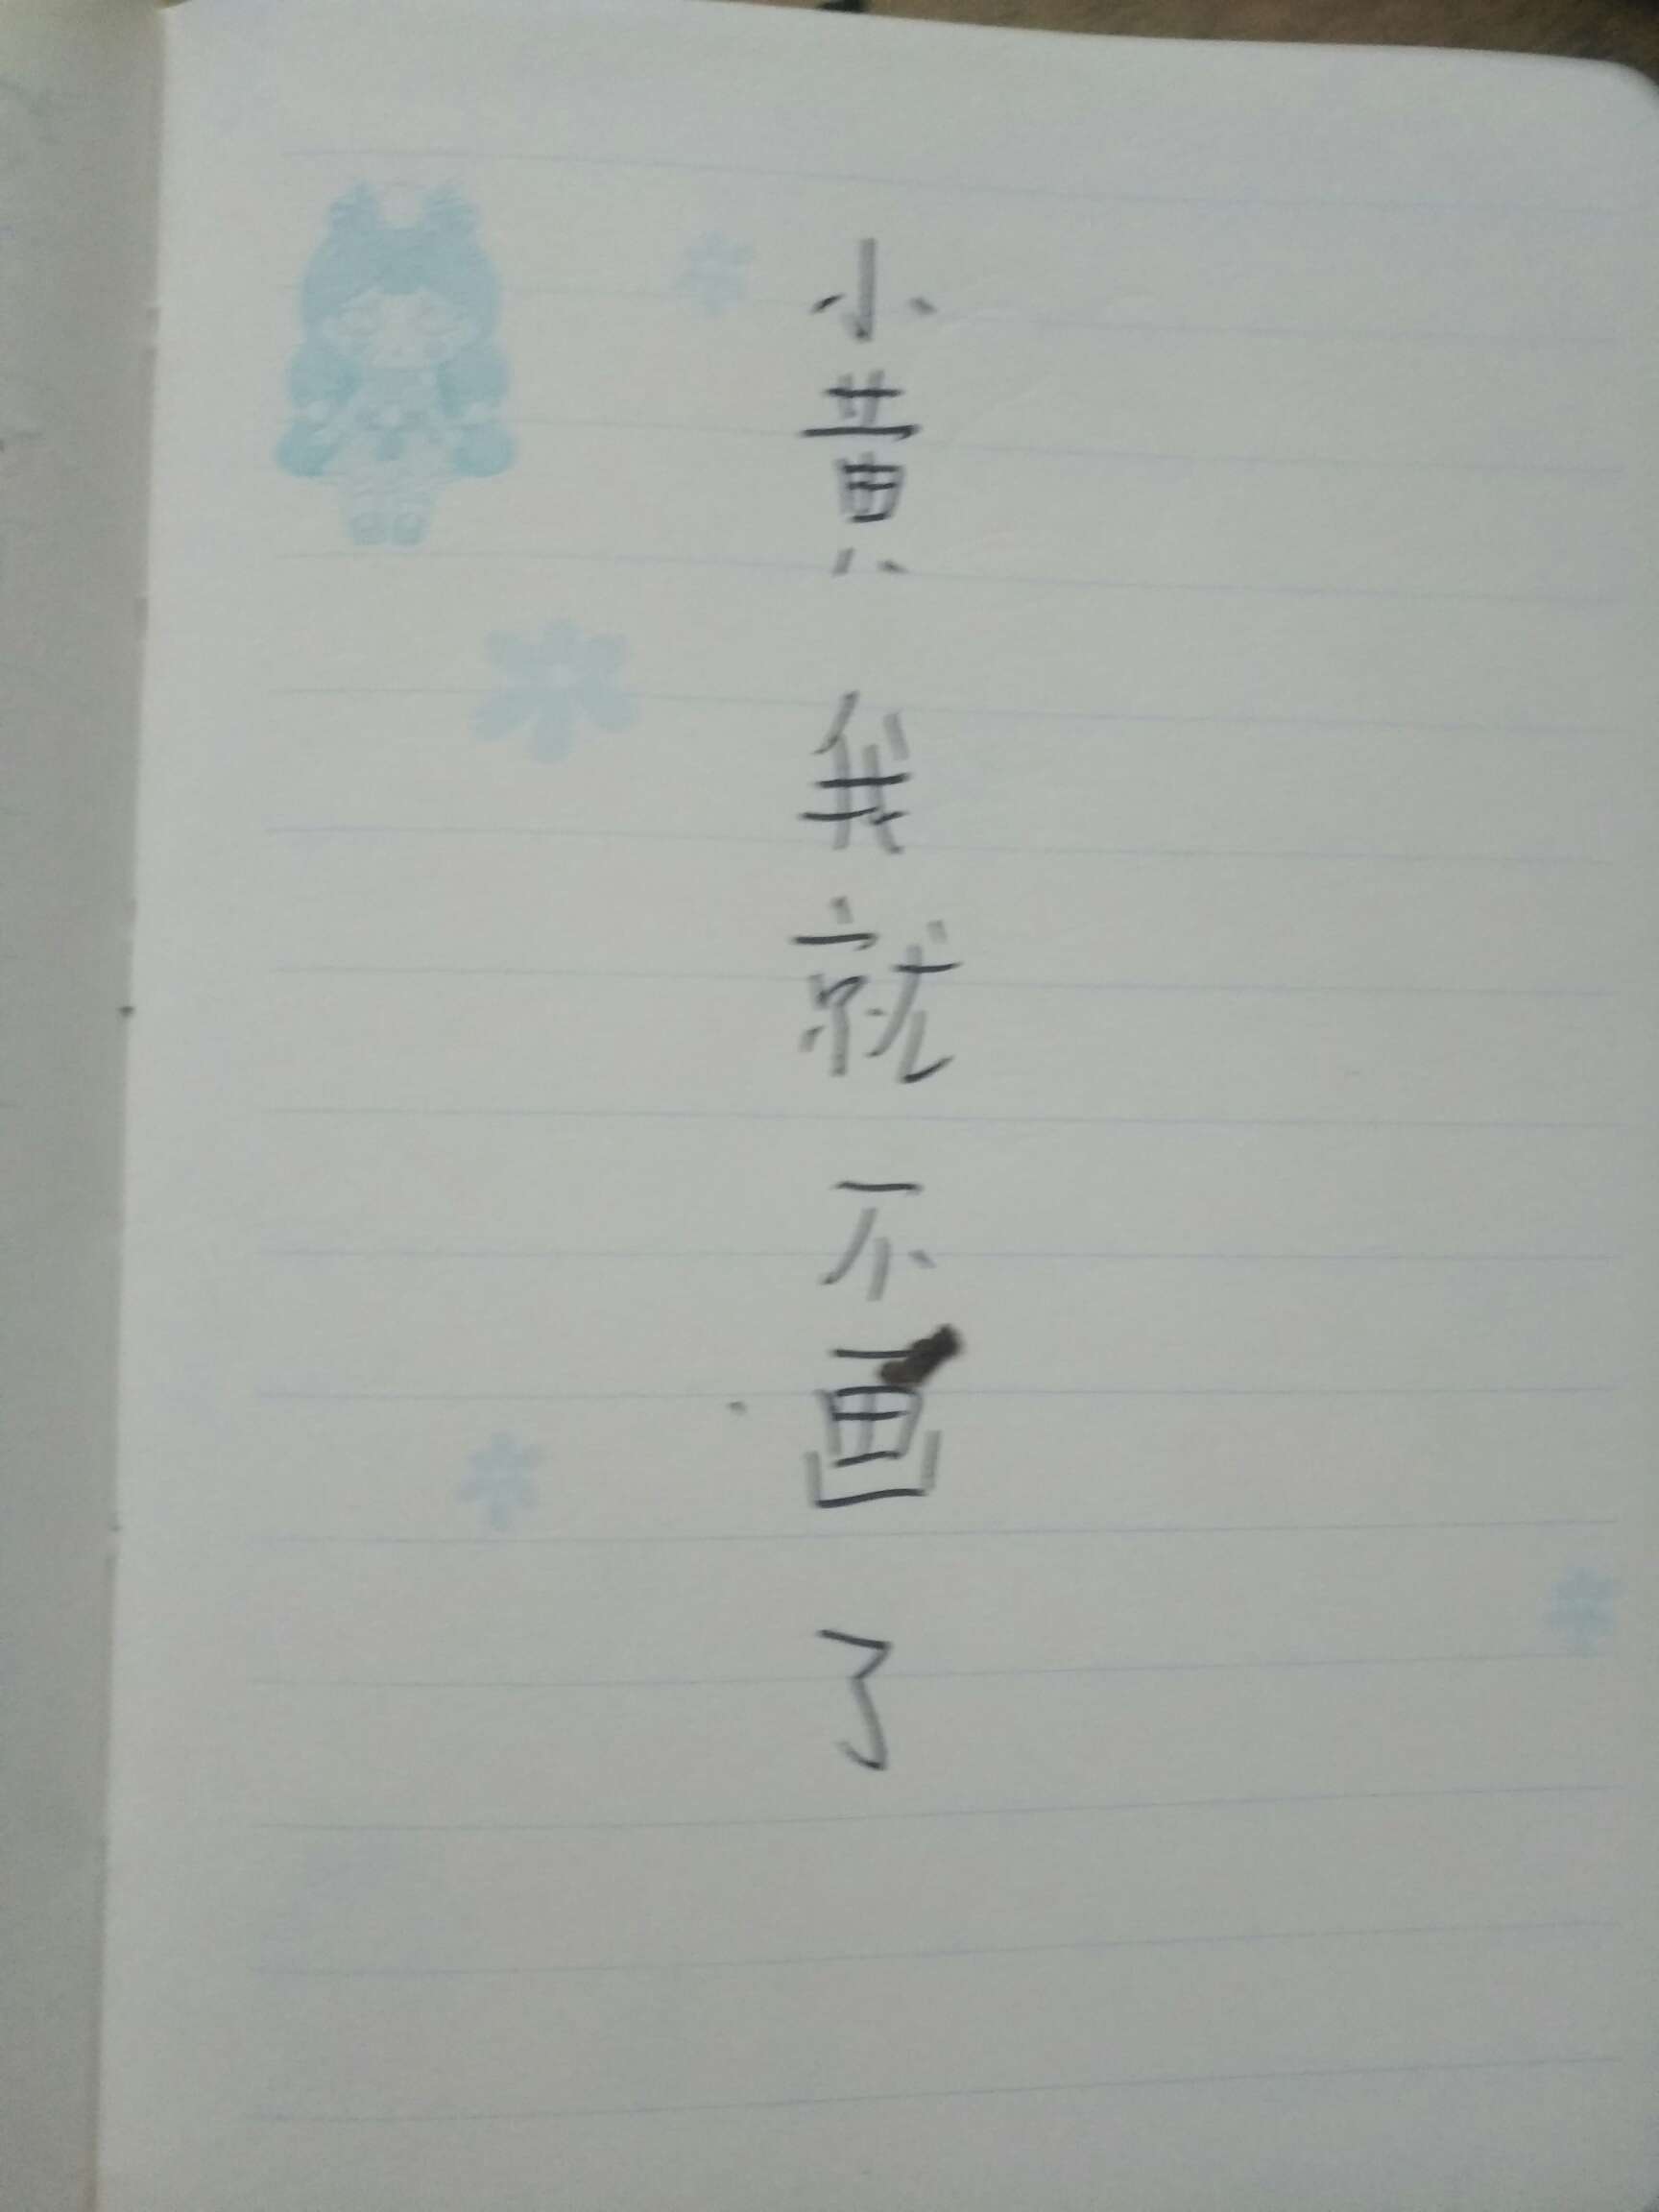 小黄我就不画了